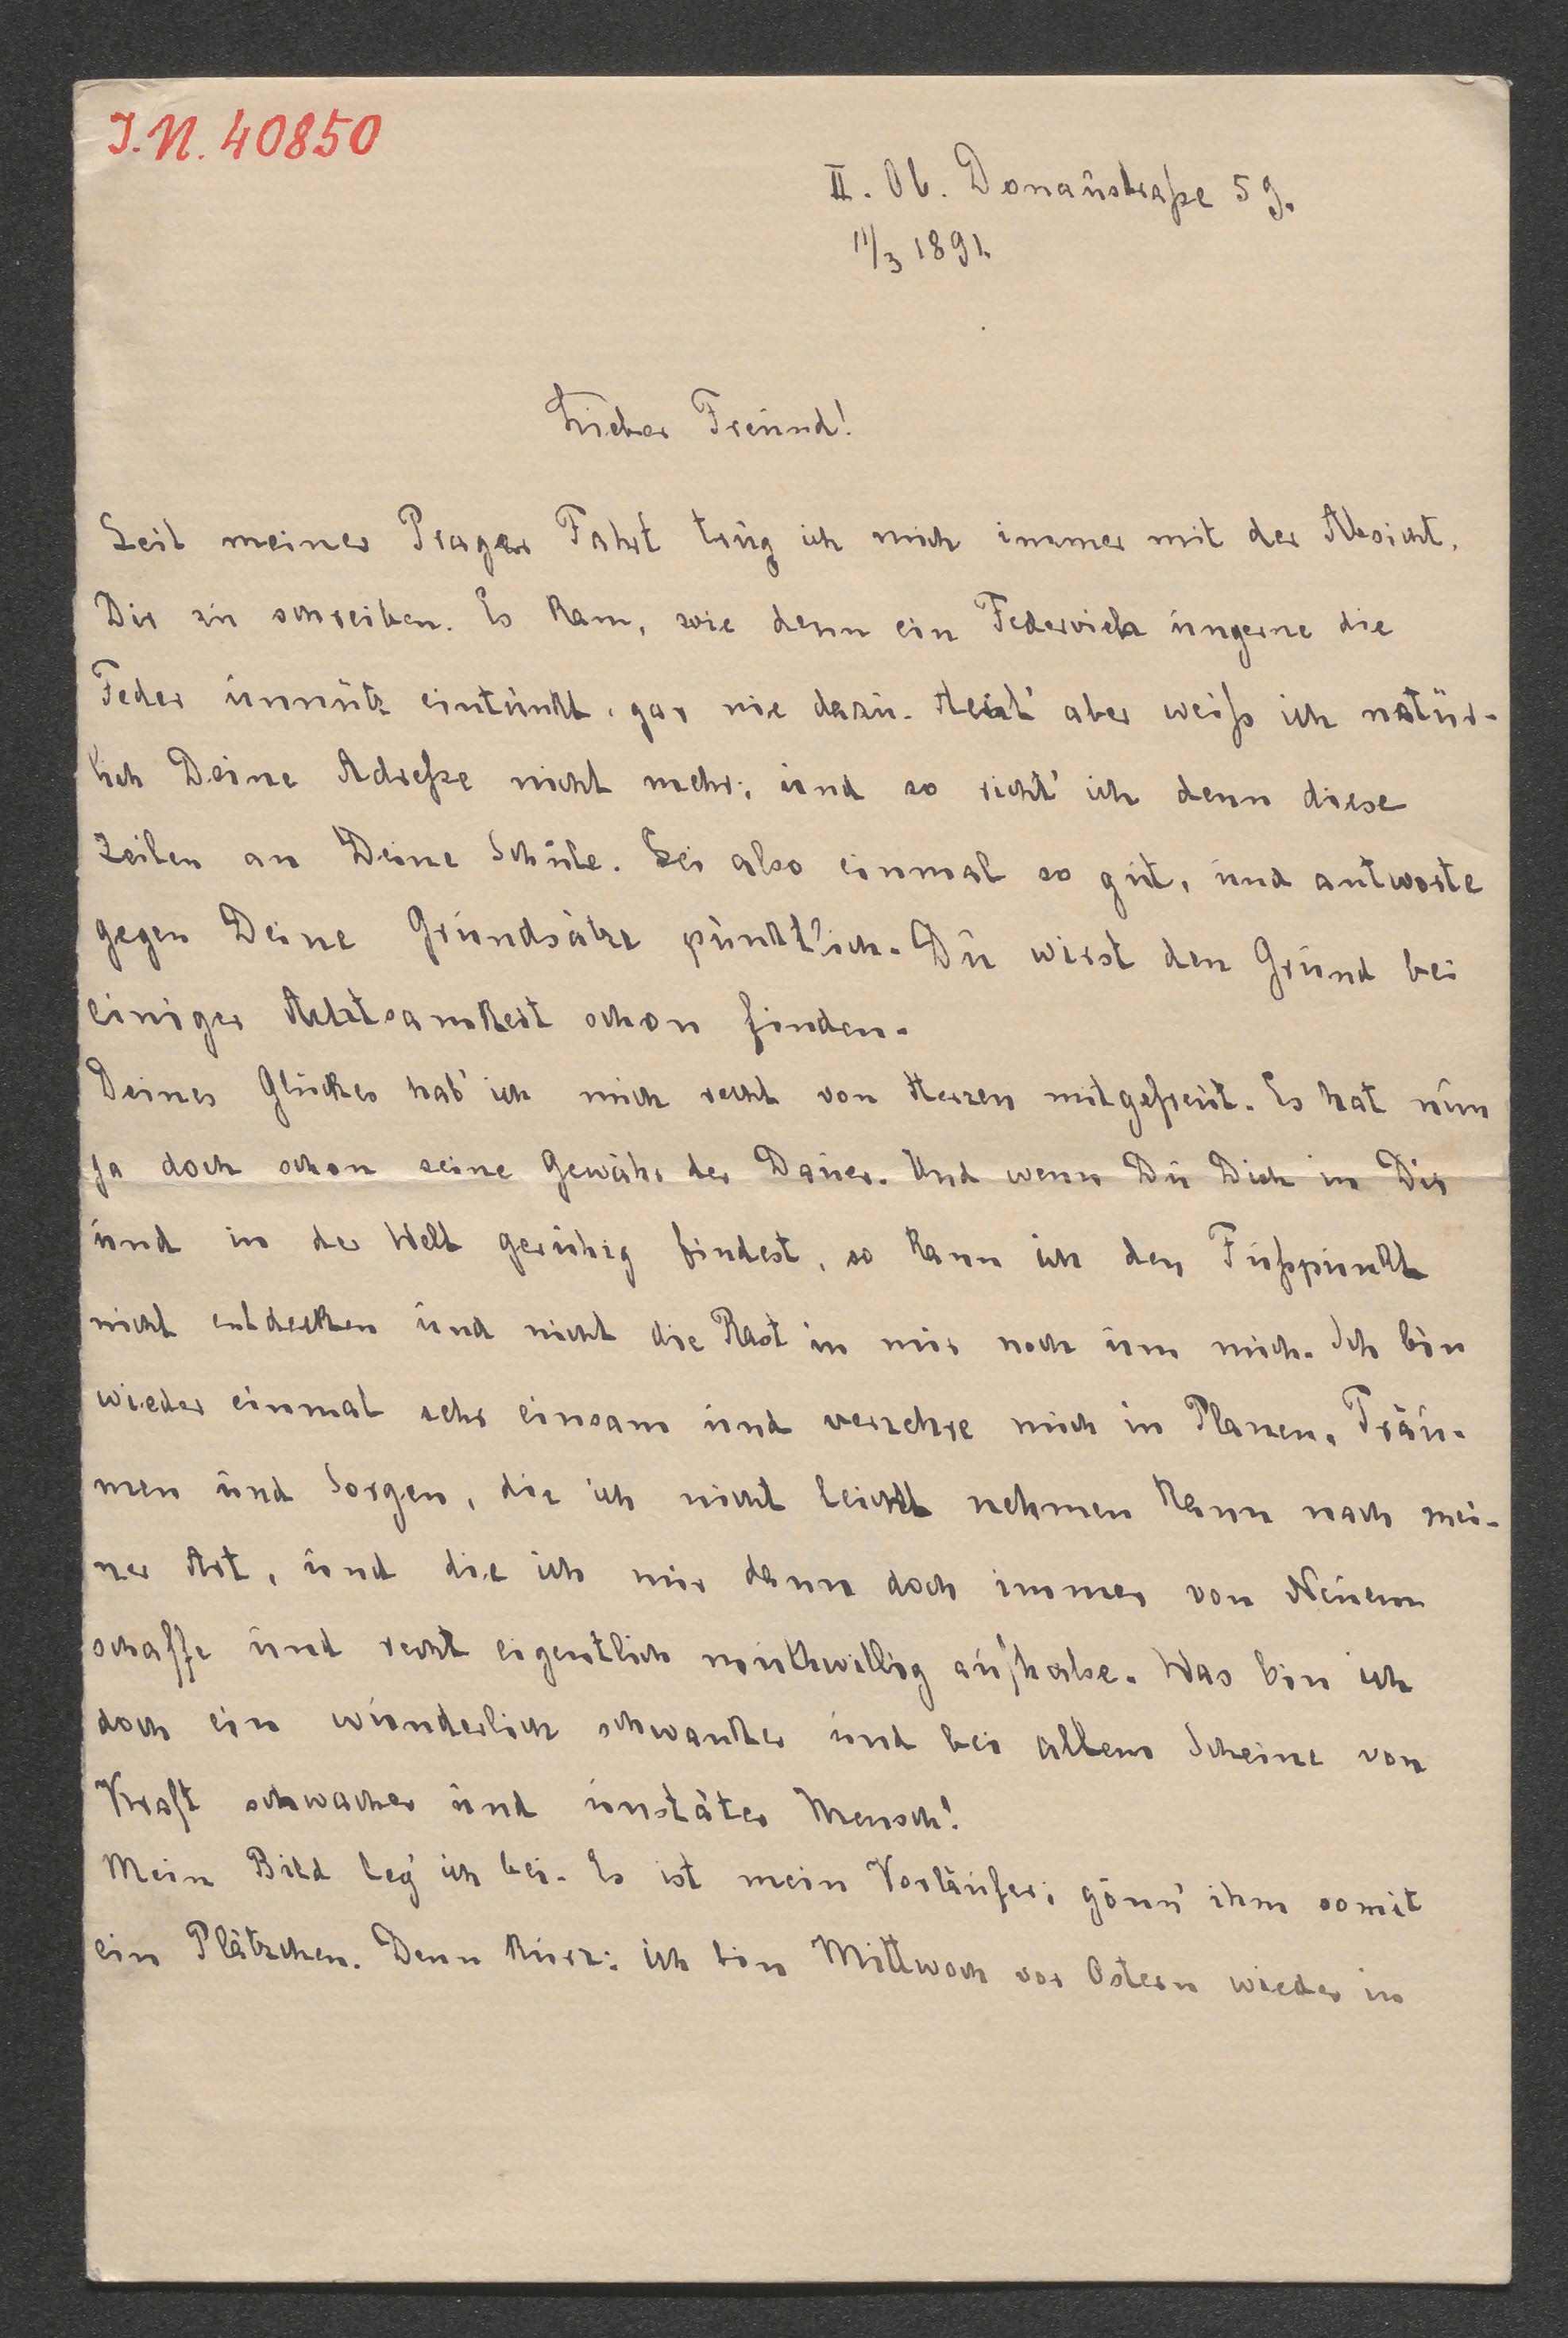 I.N. 40850
II. Ob. Donaustraße 59.
11/3 1891.
Lieber Freund!
Seit meiner Prager Fahrt trug ich mich immer mit der Absicht,
Dir zu schreiben. Es kam, wie denn ein Federvieh ungerne die
Feder unnütz eintunkt, gar nie dazu. Heut' aber weiß ich natür-
lich Deine Adreße nicht mehr; und so richt' ich denn diese
Zeilen an Deine Schule. Sei also einmal so gut, und antworte
gegen Deine Grundsätze pünktlich. Du wirst den Grund bei
einiger Achtsamkeit schon finden.
Deines Glückes hab' ich mich recht von Herzen mitgefreut. Es hat nun
ja doch schon seine Gewähr der Dauer. Und wenn Du Dich in Dir
und in der Welt geruhig findest, so kann ich den Fußpunkt
nicht entdecken und nicht die Rast in mir noch um mich. Ich bin
wieder einmal sehr einsam und verzehre mich in Planen, Träu-
men und Sorgen, die ich nicht leicht nehmen kann nach mei-
ner Art, und die ich mir dann doch immer von Neuem
schaffe und recht eigentlich muthwillig aufhalse. Was bin ich
doch ein wunderlich schwanker und bei allem Scheine von
Kraft schwacher und unstäter Mensch!
Mein Bild leg' ich bei. Es ist mein Vorläufer; gönn' ihm somit
ein Plätzchen. Denn kurz: ich bin Mittwoch vor Ostern wieder in